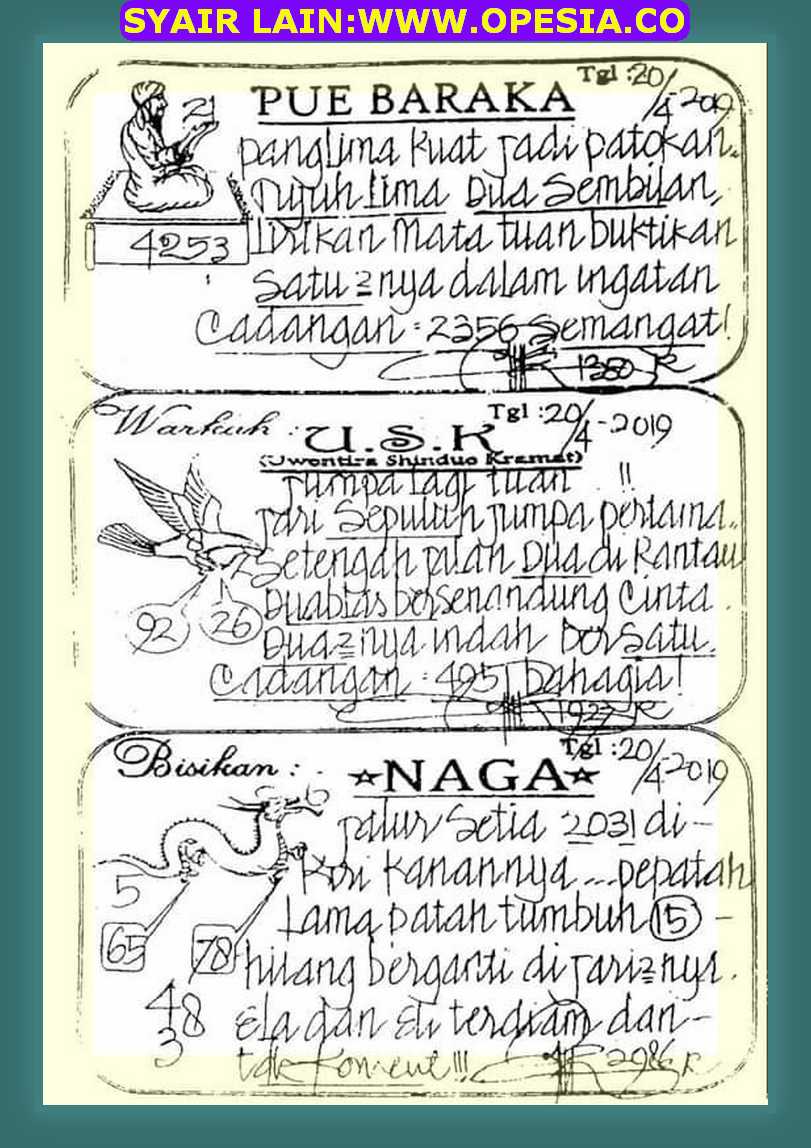 SYAIR LAIN:WWW.OPESIA.CO
Tgl :20/4-2019
PUE BARAKA
21
panglima kuat jadi patokan..
Tujuh lima Dua Sembilan,
4253
Lirikan Mata tuan buktikan
Satu2nya dalam ingatan
Cadangan : 2356 Semangat!
1380
Warkuh :
U.S.K
Tgl :20/4-2019
(Uwentira Shinduo Kramat)
Jumpa lagi tuan !!
Jari Sepuluh jumpa pertama..
Setengah jalan Dua di Rantau
92 26
Duablas bersenandung Cinta.
Dua2nya indah bersatu.
Cadangan : 4951 bahagia!
1927
Bisikan :
NAGA
Tgl :20/4-2019
jalur Setia 2031 di-
5
Kiri Kanannya ... pepatah
Lama patah tumbuh 15 -
65 78
hilang berganti di jari2nya.
48
3
Ela dan Eli terdiam dan-
tak Koment!!!
2986